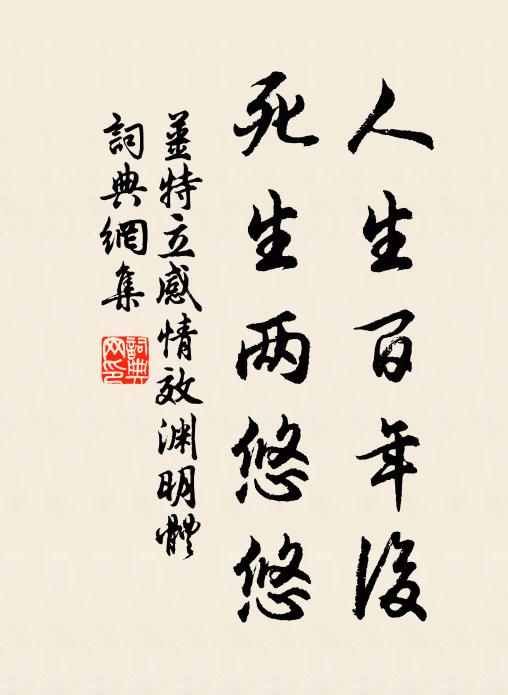 人生百年後
死生两悠悠
姜特立感情效渊明體
詞典網集
詞典網印